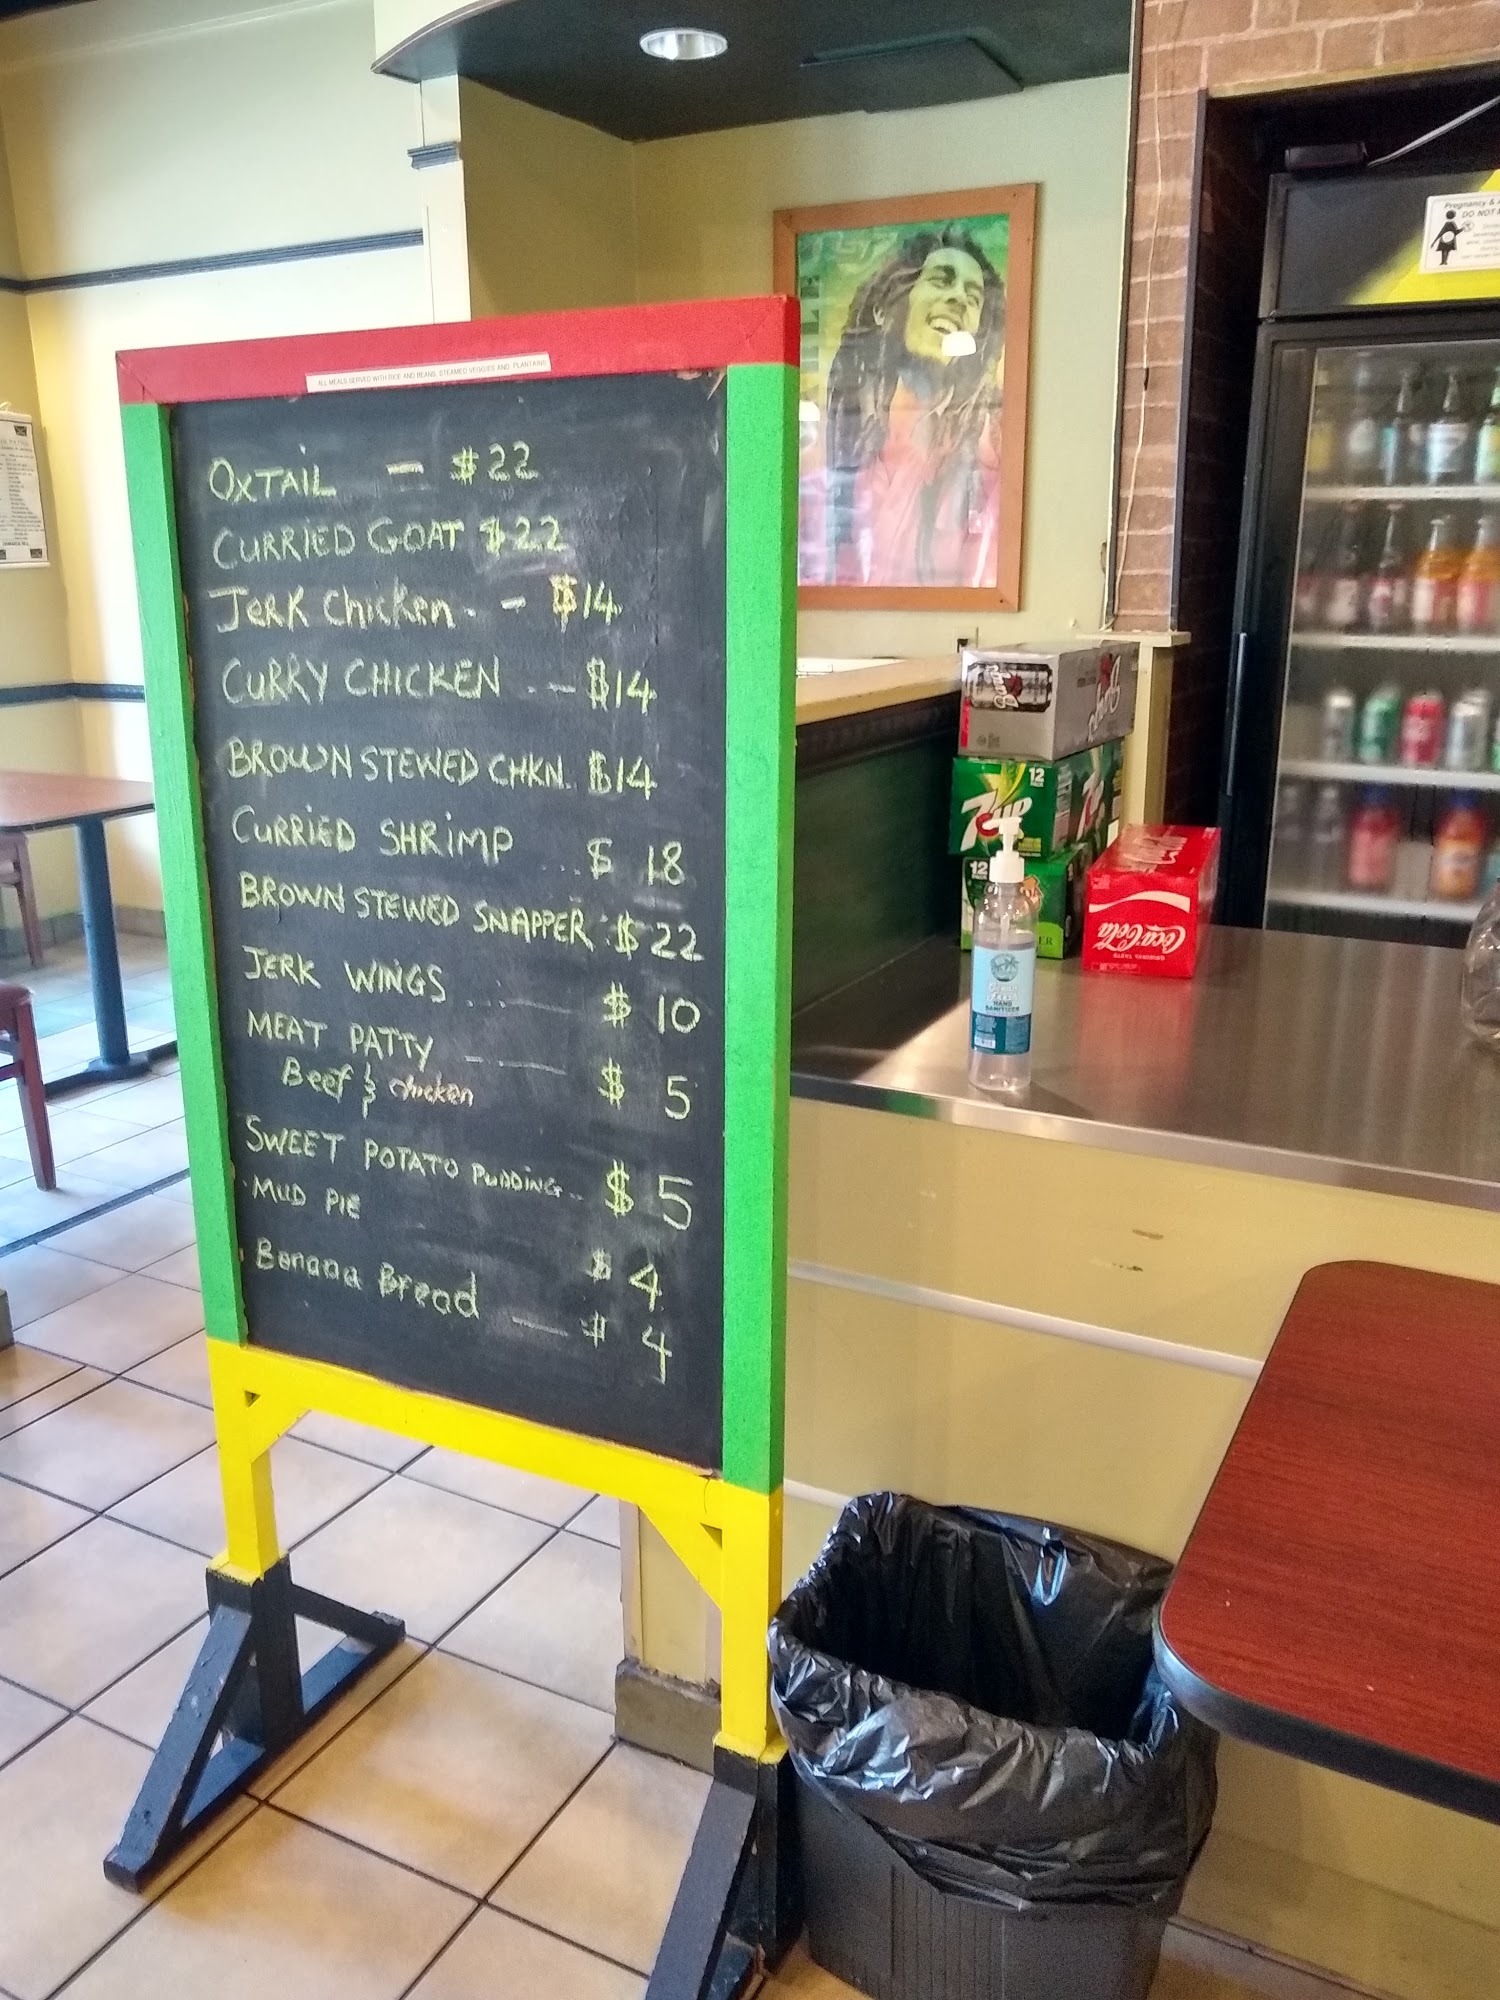 ALL MEALS SERVED WITH RICE AND BEANS, STEAMED VEGGIES AND PLANTAINS
OXTAIL — $22
CURRIED GOAT $22
JERK Chicken - - $14
CURRY CHICKEN - — $14
BROWN STEWED CHKN. $14
CURRIED SHRIMP ... $ 18
BROWN STEWED SNAPPER : $ 22
JERK WINGS ... $ 10
MEAT PATTY ---- $ 5
Beef & chicken
SWEET POTATO PUDDING .. $ 5
MUD PIE $ 4
Banana Bread — $ 4
Pregnancy &
DO NOT
Barq's
Barq's
7UP
12
PACK
12
Coca-Cola
ORIGINAL TASTE
HAND
SANITIZER